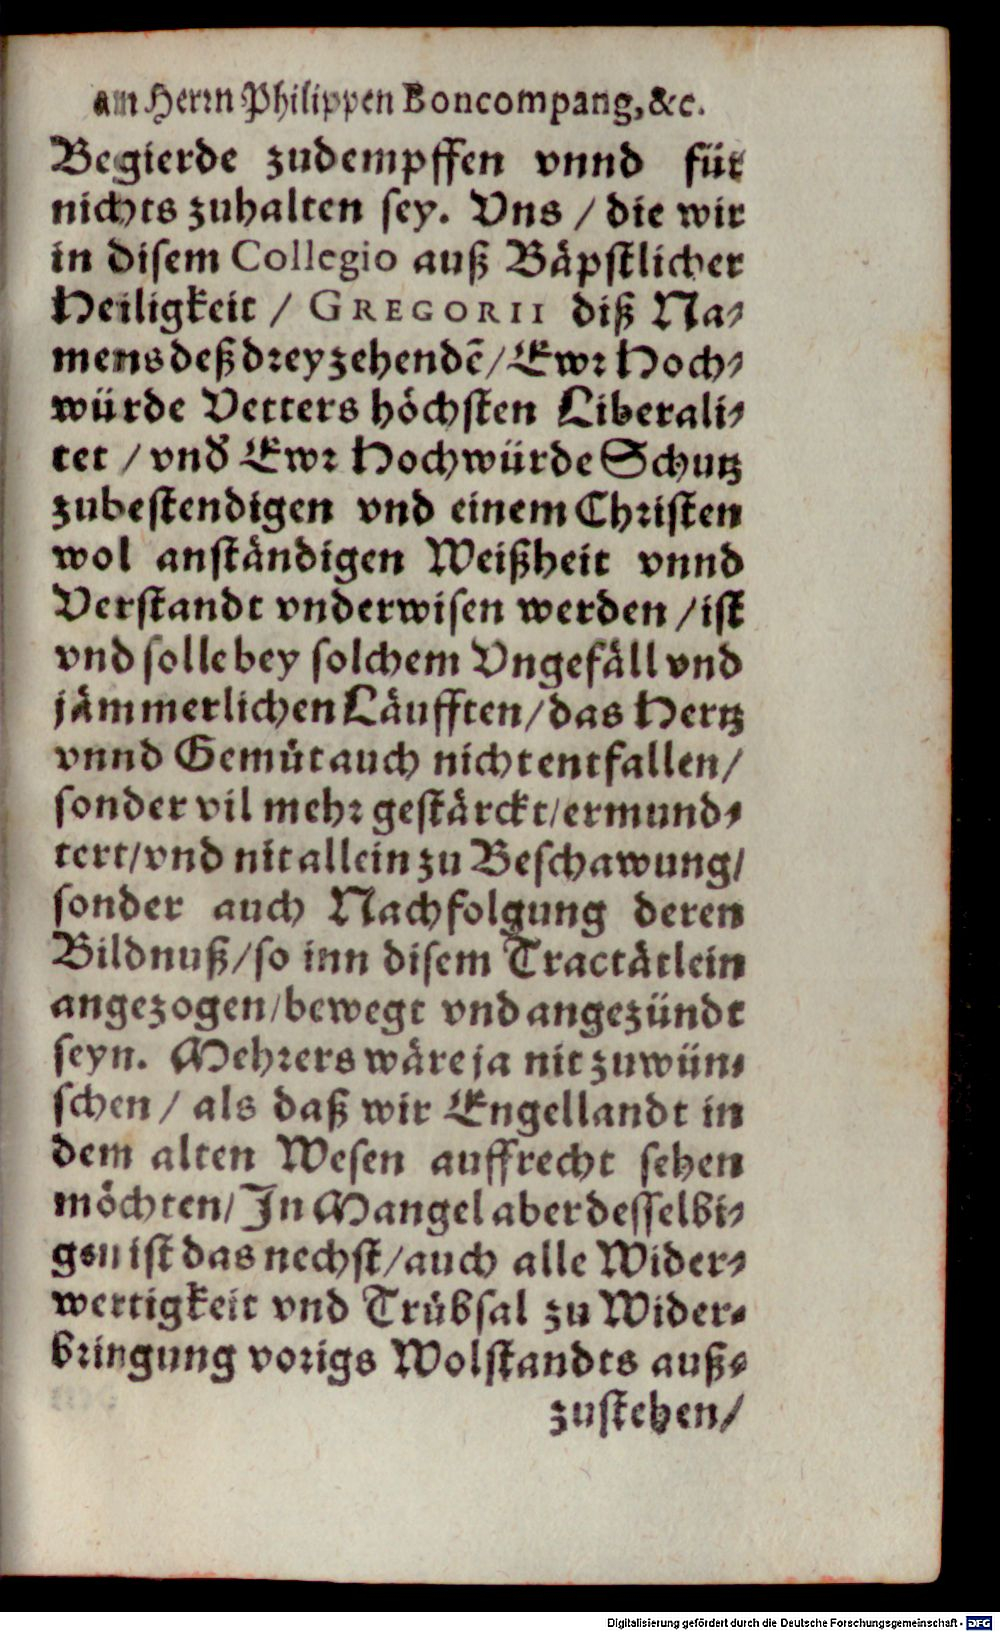 am Herrn Philippen Boncompang, &c.
Begierde zudempffen vnnd für
nichts zuhalten sey. Vns / die wir
in disem Collegio auß Bäpstlicher
Heiligkeit / GREGORII diß Na-
mens deß dreyzehendē / Ewr Hoch-
würde Vetters höchsten Liberali-
tet / vnd Ewr Hochwürde Schutz
zubestendigen vnd einem Christen
wol anständigen Weißheit vnnd
Verstandt vnderwisen werden / ist
vnd solle bey solchem Vngefäll vnd
jämmerlichen Läufften / das Hertz
vnnd Gemüt auch nicht entfallen /
sonder vil mehr gestärckt / ermund-
tert / vnd nit allein zu Beschawung /
sonder auch Nachfolgung deren
Bildnuß / so inn disem Tractätlein
angezogen / bewegt vnd angezündt
seyn. Mehrers wäre ja nit zuwün-
schen / als daß wir Engellandt in
dem alten Wesen auffrecht sehen
möchten / In Mangel aber desselbi-
gen ist das nechst / auch alle Wider-
wertigkeit vnd Trübsal zu Wider-
bringung vorigs Wolstandts auß-
zustehen /
Digitalisierung gefördert durch die Deutsche Forschungsgemeinschaft - DFG